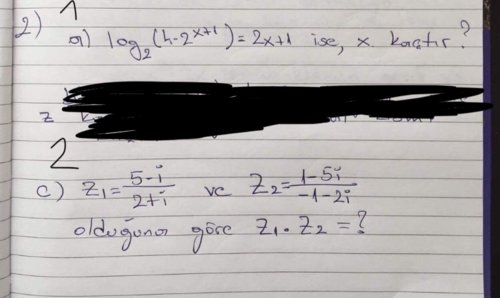 1
2)
a) log₂(4-2ˣ⁺¹) = 2x+1 ise, x kaçtır?
z
2
c) z₁ = (5-i)/(2+i) ve z₂ = (1-5i)/(-1-2i)
olduğuna göre z₁·z₂ = ?